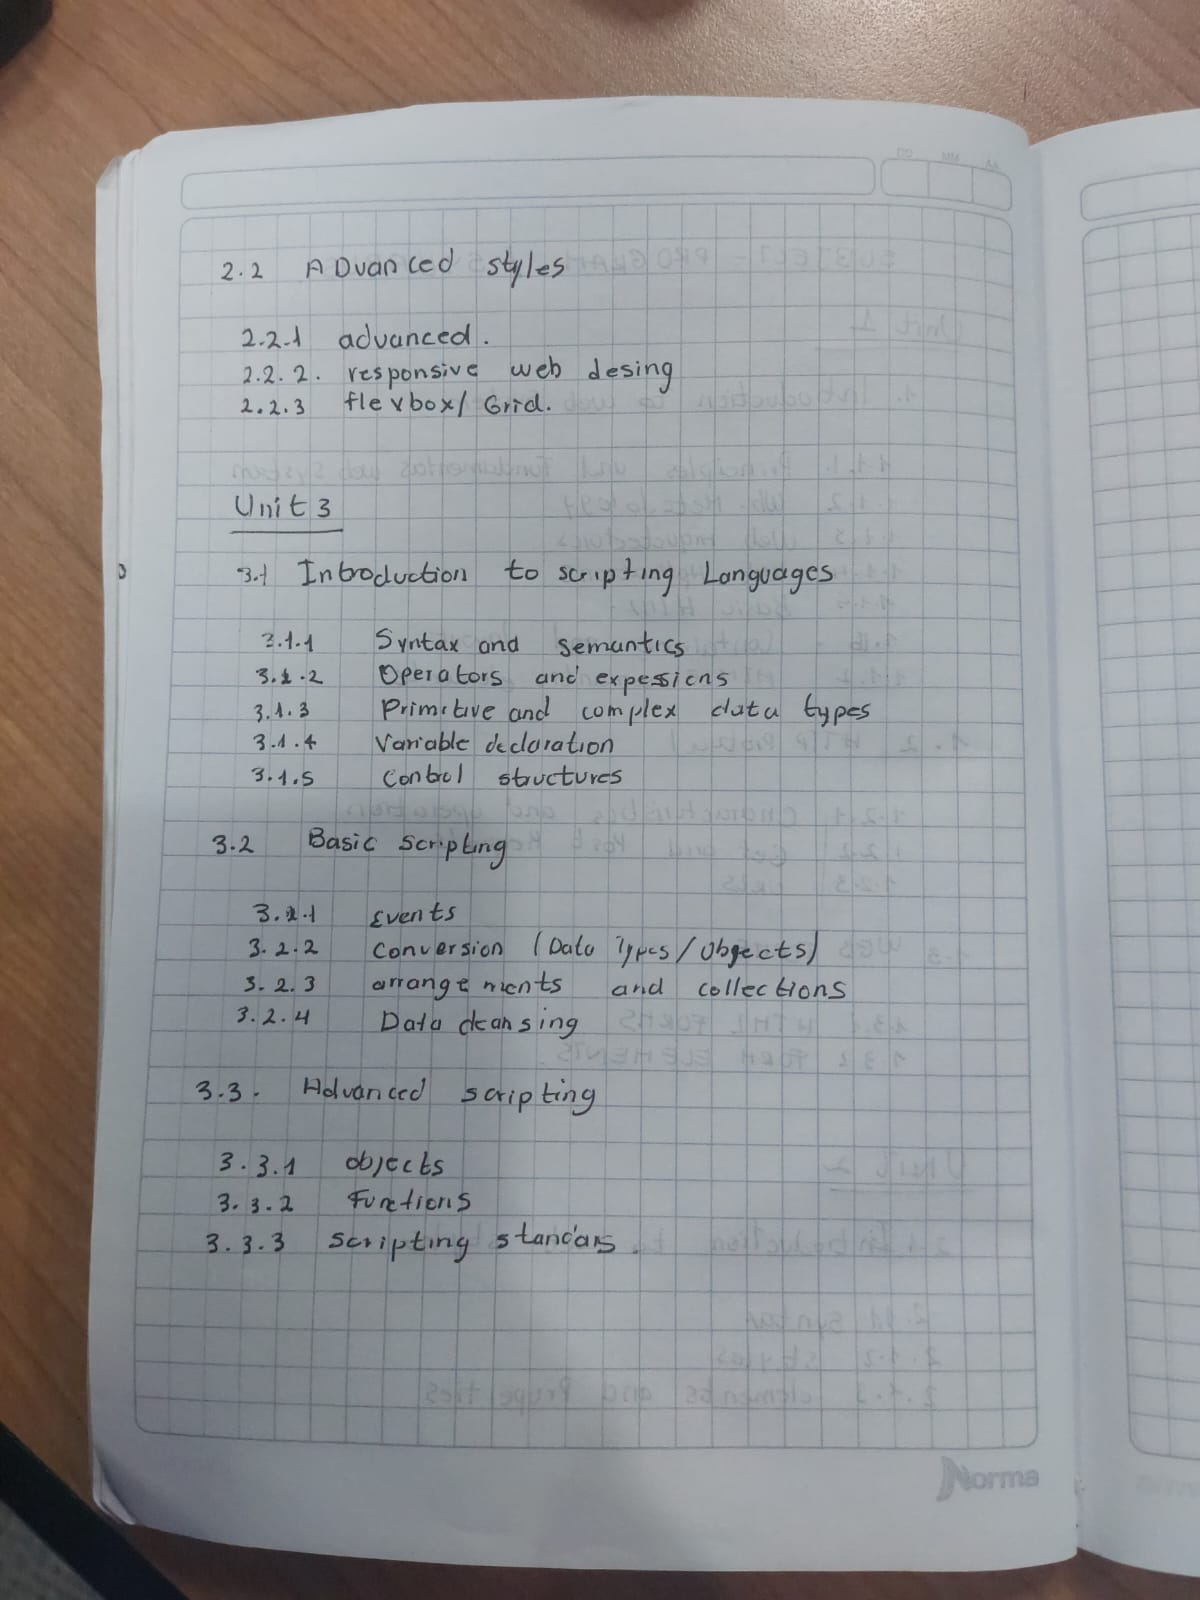 DD MM AA
2.2 ADvanced styles
2.2.1 advanced.
2.2.2. responsive web desing
2.2.3 flexbox/Grid.
Unit 3
3.1 Introduction to scripting Languages
3.1.1 Syntax and semantics
3.1.2 Operators and expessions
3.1.3 Primitive and complex data types
3.1.4 Variable declaration
3.1.5 Control structures
3.2 Basic Scripting
3.2.1 Events
3.2.2 Conversion (Data Types/Objects)
3.2.3 arrangements and collections
3.2.4 Data cleansing
3.3. Advanced scripting
3.3.1 objects
3.3.2 Functions
3.3.3 Scripting standars
Norma